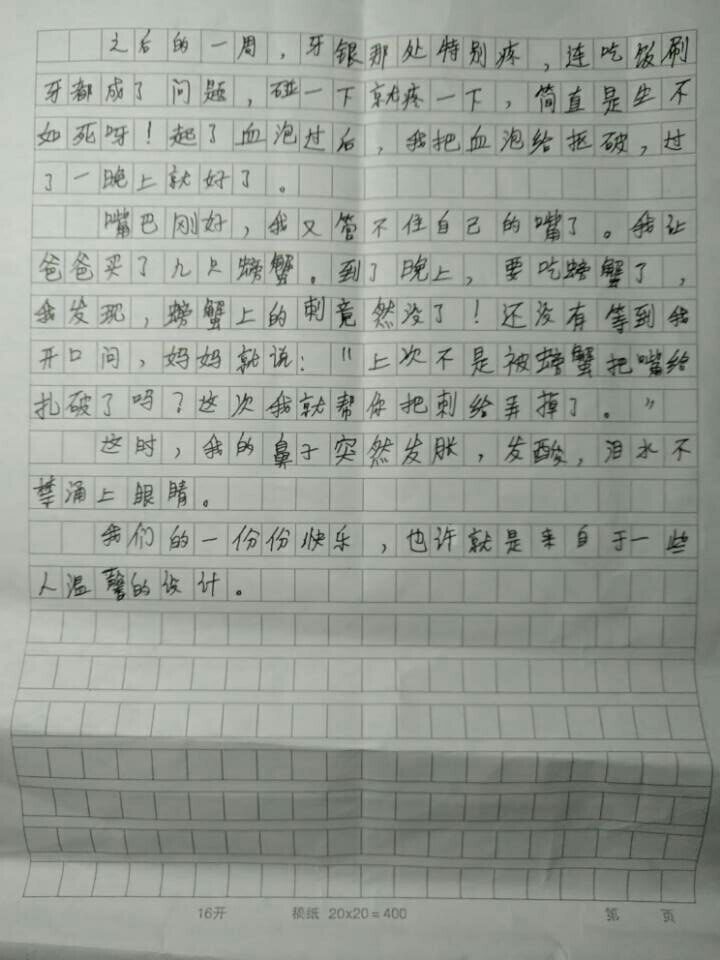 之后的一周，牙银那处特别疼，连吃饭刷
牙都成了问题，碰一下就疼一下，简直是生不
如死呀！起了血泡过后，我把血泡给抠破，过
了一晚上就好了。
嘴巴刚好，我又管不住自己的嘴了。我让
爸爸买了九只螃蟹。到了晚上，要吃螃蟹了，
我发现，螃蟹上的刺竟然没了！还没有等到我
开口问，妈妈就说：“上次不是被螃蟹把嘴给
扎破了吗？这次我就帮你把刺给弄掉了。”
这时，我的鼻子突然发胀，发酸，泪水不
禁涌上眼睛。
我们的一份份快乐，也许就是来自于一些
人温馨的设计。
16开 稿纸 20x20=400 第 页